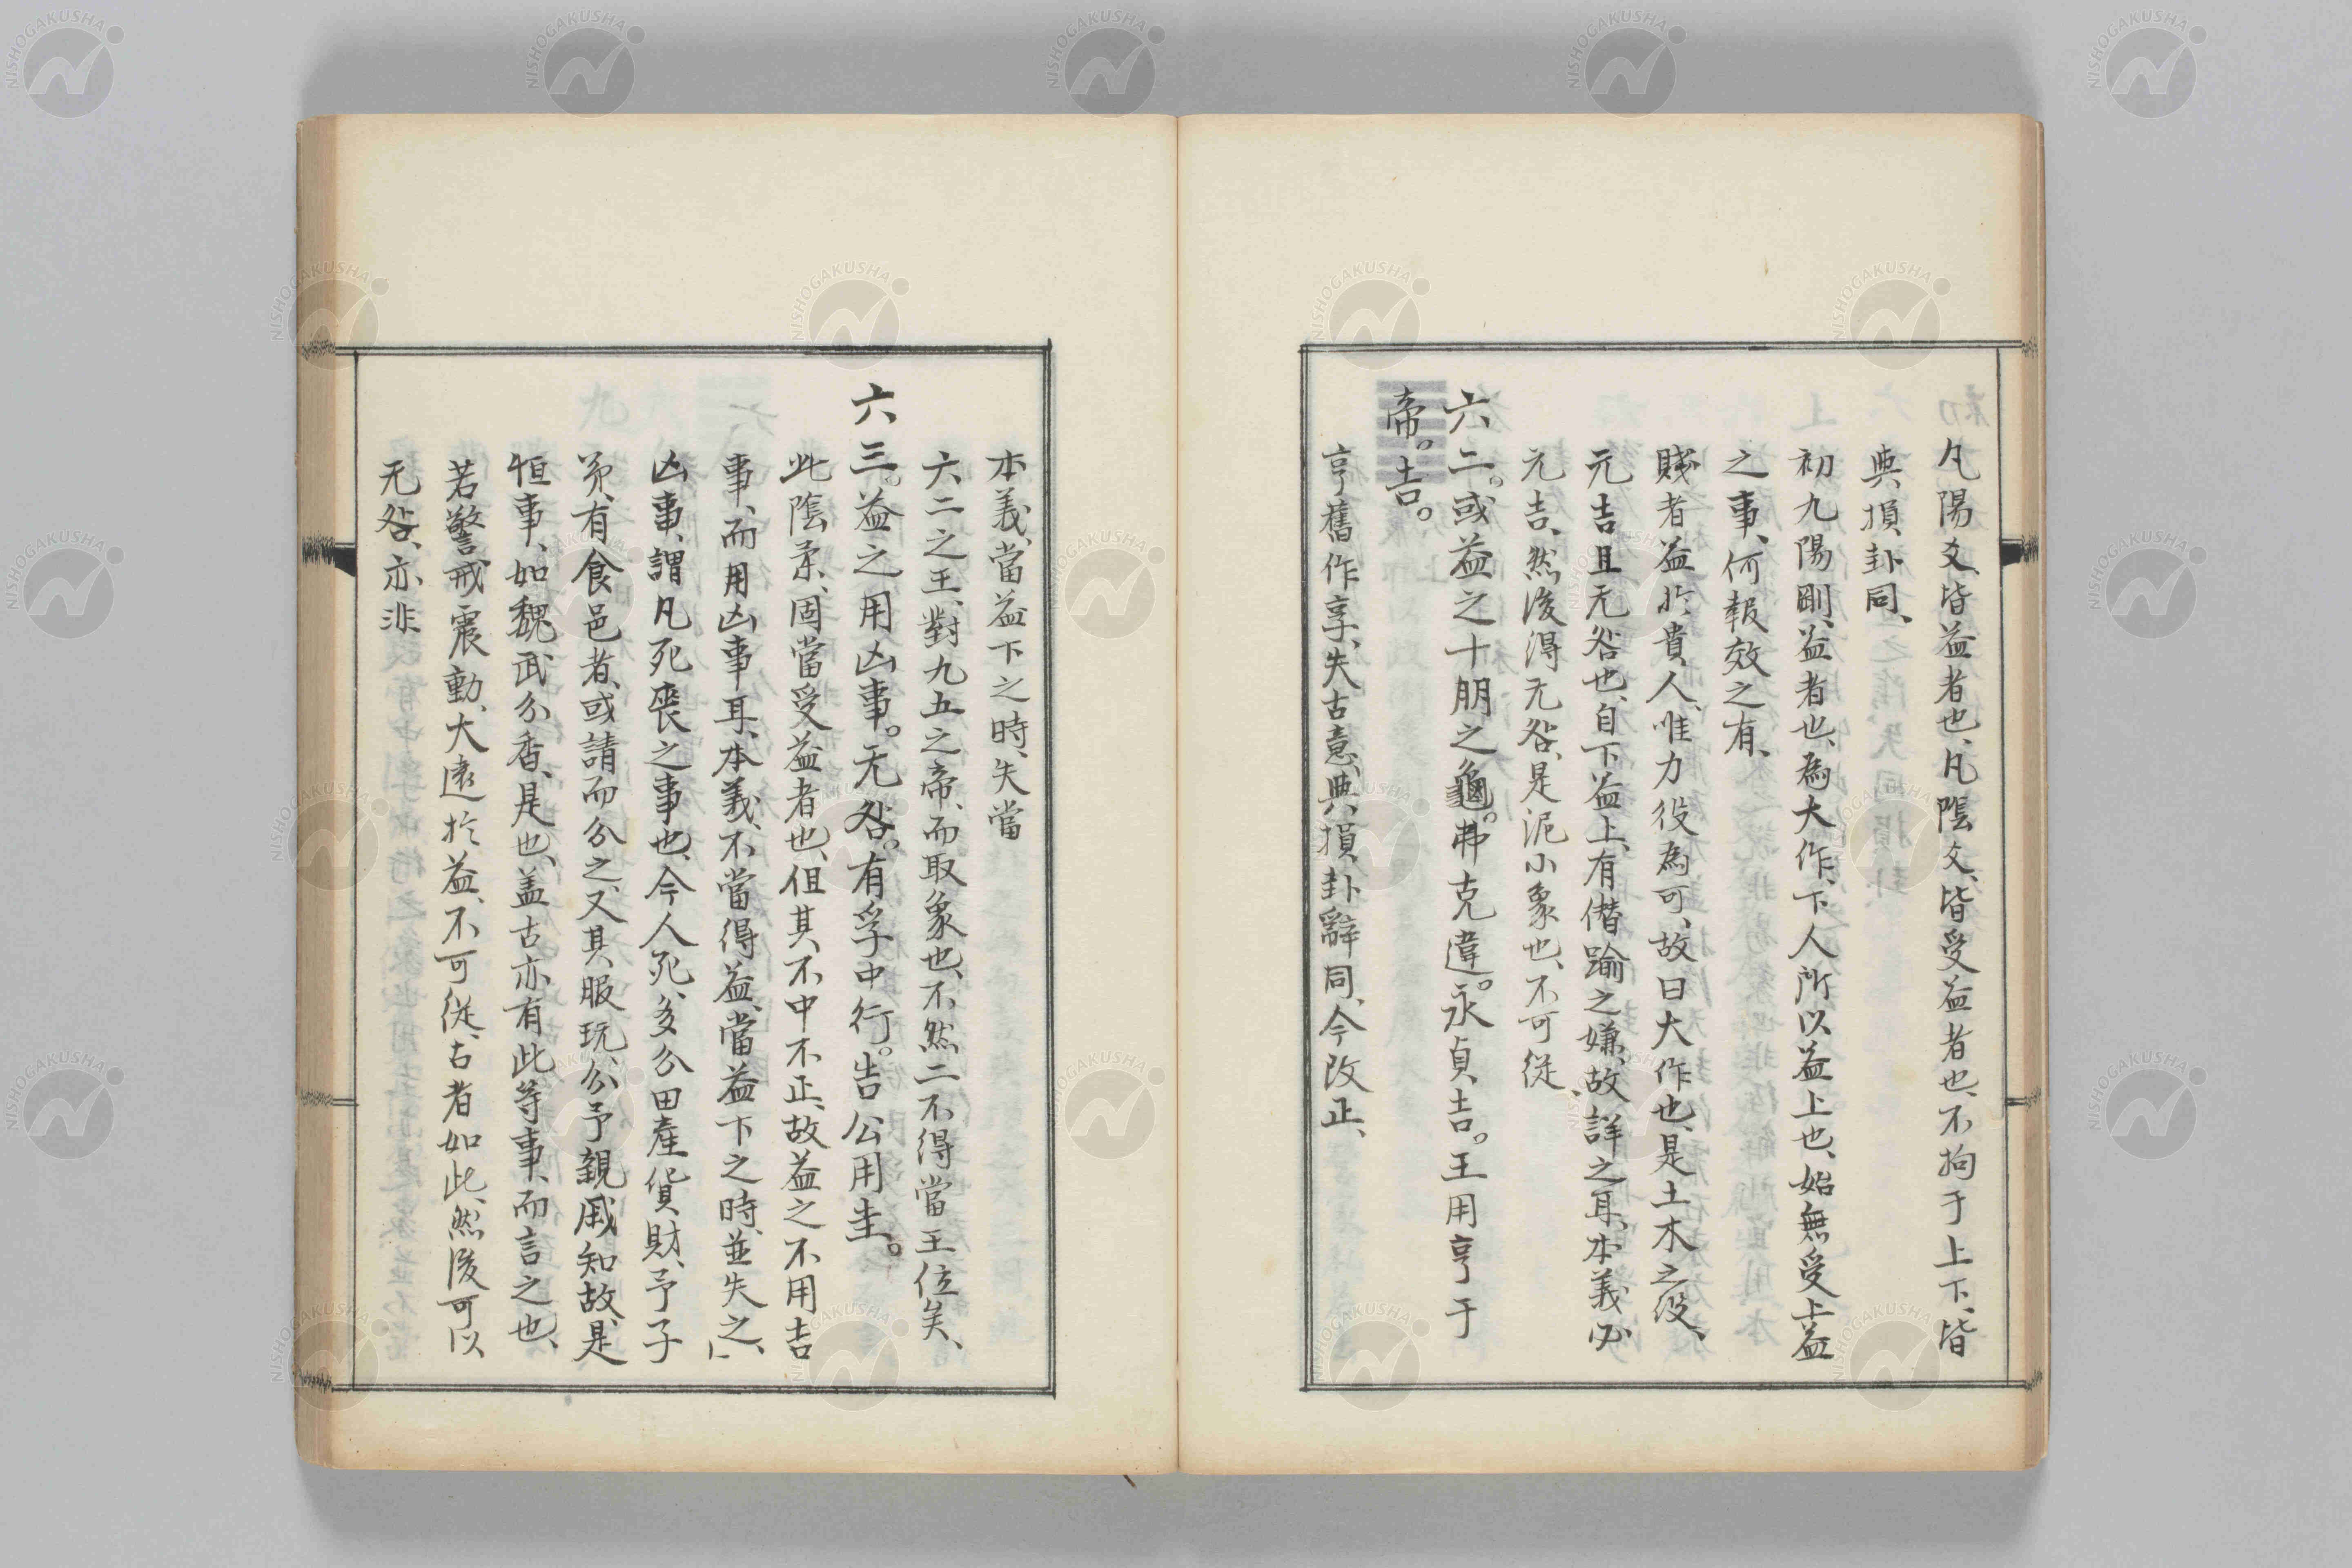 凡陽爻、皆益者也、凡陰爻、皆受益者也、不拘于上下、皆
典損卦同、
初九陽剛、益者也、為大作、下人所以益上也、始無受上益
之事、何報效之有、
賤者益於貴人、唯力役為可、故曰大作也、是土木之役、
元吉且无咎也、自下益上、有僭踰之嫌、故詳之耳、本義必
元吉、然後得无咎、是泥小象也、不可從、
六二。或益之十朋之龜。弗克違。永貞吉。王用亨于
帝。吉。
亨舊作享、失古意、典損卦辭同、今改正、
本義、當益下之時、失當
六二之王、對九五之帝、而取象也、不然二不得當王位矣、
六三。益之用凶事。无咎。有孚中行。告公用圭。
此陰柔、固當受益者也、但其不中不正、故益之不用吉
事、而用凶事耳、本義、不當得益、當益下之時、並失之、
凶事、謂凡死喪之事也、今人死、多分田產貨財、予子
弟、有食邑者、或請而分之、又其服玩、分予親戚知故、是
恒事、如魏武分香、是也、盖古亦有此等事、而言之也、
若警戒震動、大遠於益、不可從、古者如此、然後可以
无咎、亦非
NISHOGAKUSHA